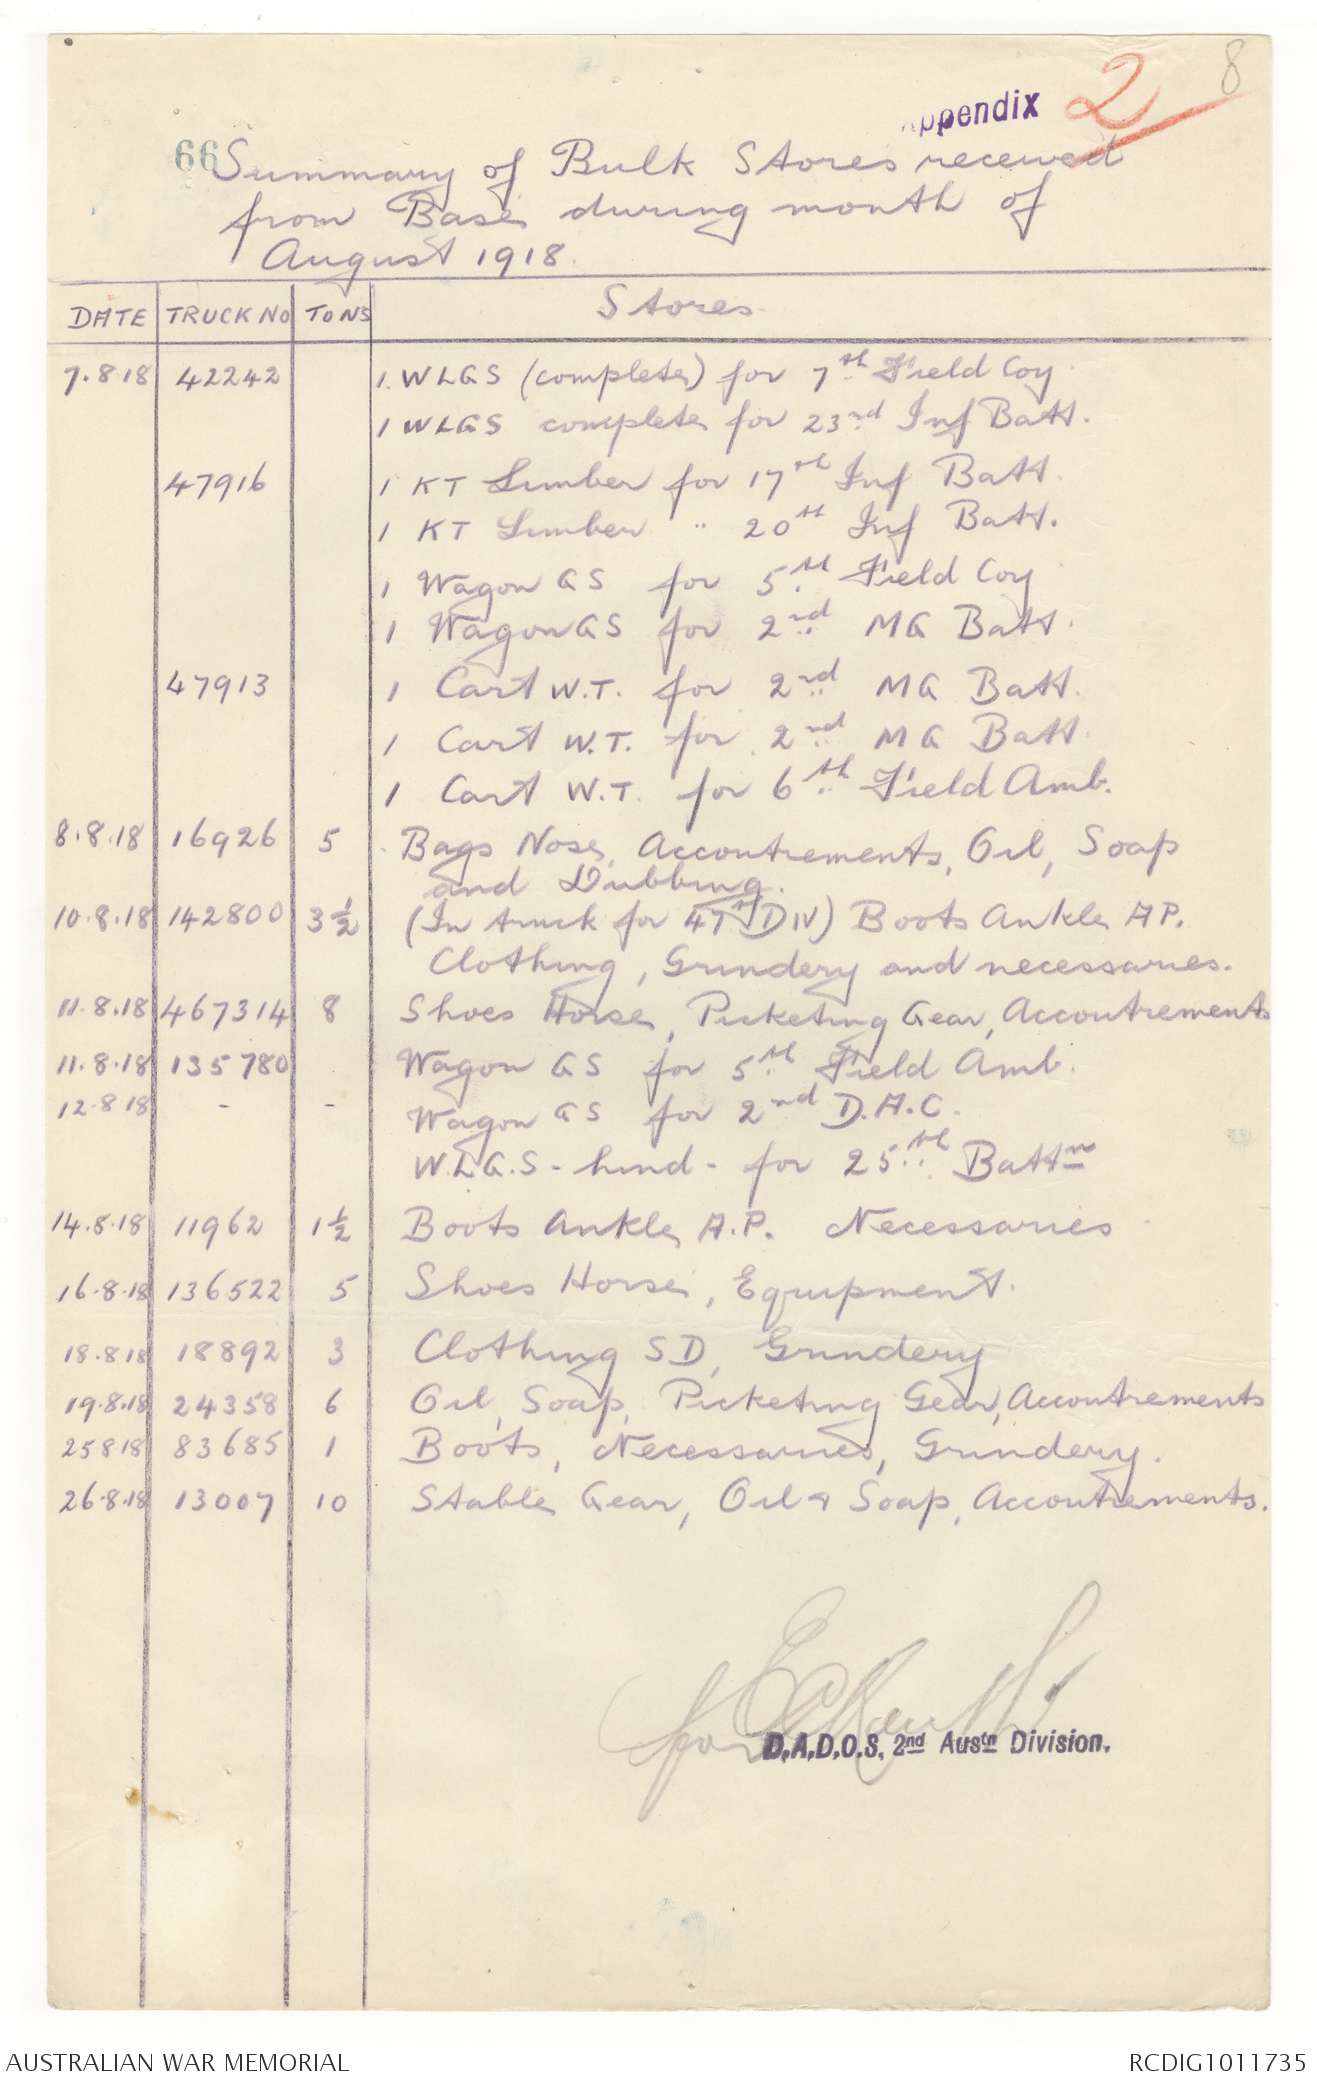 8
Appendix 2
66
Summary of Bulk Stores received
from Base during month of
August 1918.
DATE TRUCK NO TONS Stores
7.8.18 42242 1 WLGS (complete) for 7th Field Coy
1 WLGS complete for 23rd Inf Batt.
47916 1 KT Limber for 17th Inf Batt.
1 KT Limber " 20th Inf Batt.
1 Wagon GS for 5th Field Coy
1 Wagon GS for 2nd MG Batt.
47913 1 Cart W.T. for 2nd MG Batt.
1 Cart W.T. for 2nd MG Batt.
1 Cart W.T. for 6th Field Amb.
8.8.18 16926 5 Bags Nose, Accoutrements, Oil, Soap
and Dubbing.
10.8.18 142800 3½ (In truck for 47th DIV) Boots Ankle AP.
Clothing, Grindery and necessaries.
11.8.18 467314 8 Shoes Horse, Picketing Gear, Accoutrements
11.8.18 135780 Wagon GS for 5th Field Amb.
12.8.18 - - Wagon GS for 2nd D.A.C.
W.L.G.S - hind - for 25th Battn
14.8.18 11962 1½ Boots Ankle A.P. Necessaries
16.8.18 136522 5 Shoes Horse, Equipment.
18.8.18 18892 3 Clothing SD, Grindery
19.8.18 24358 6 Oil, Soap, Picketing Gear, Accoutrements
25 8 18 83685 1 Boots, Necessaries, Grindery.
26.8.18 13007 10 Stable Gear, Oil & Soap, Accoutrements.
for
D.A.D.O.S. 2nd Austn Division.
AUSTRALIAN WAR MEMORIAL
RCDIG1011735